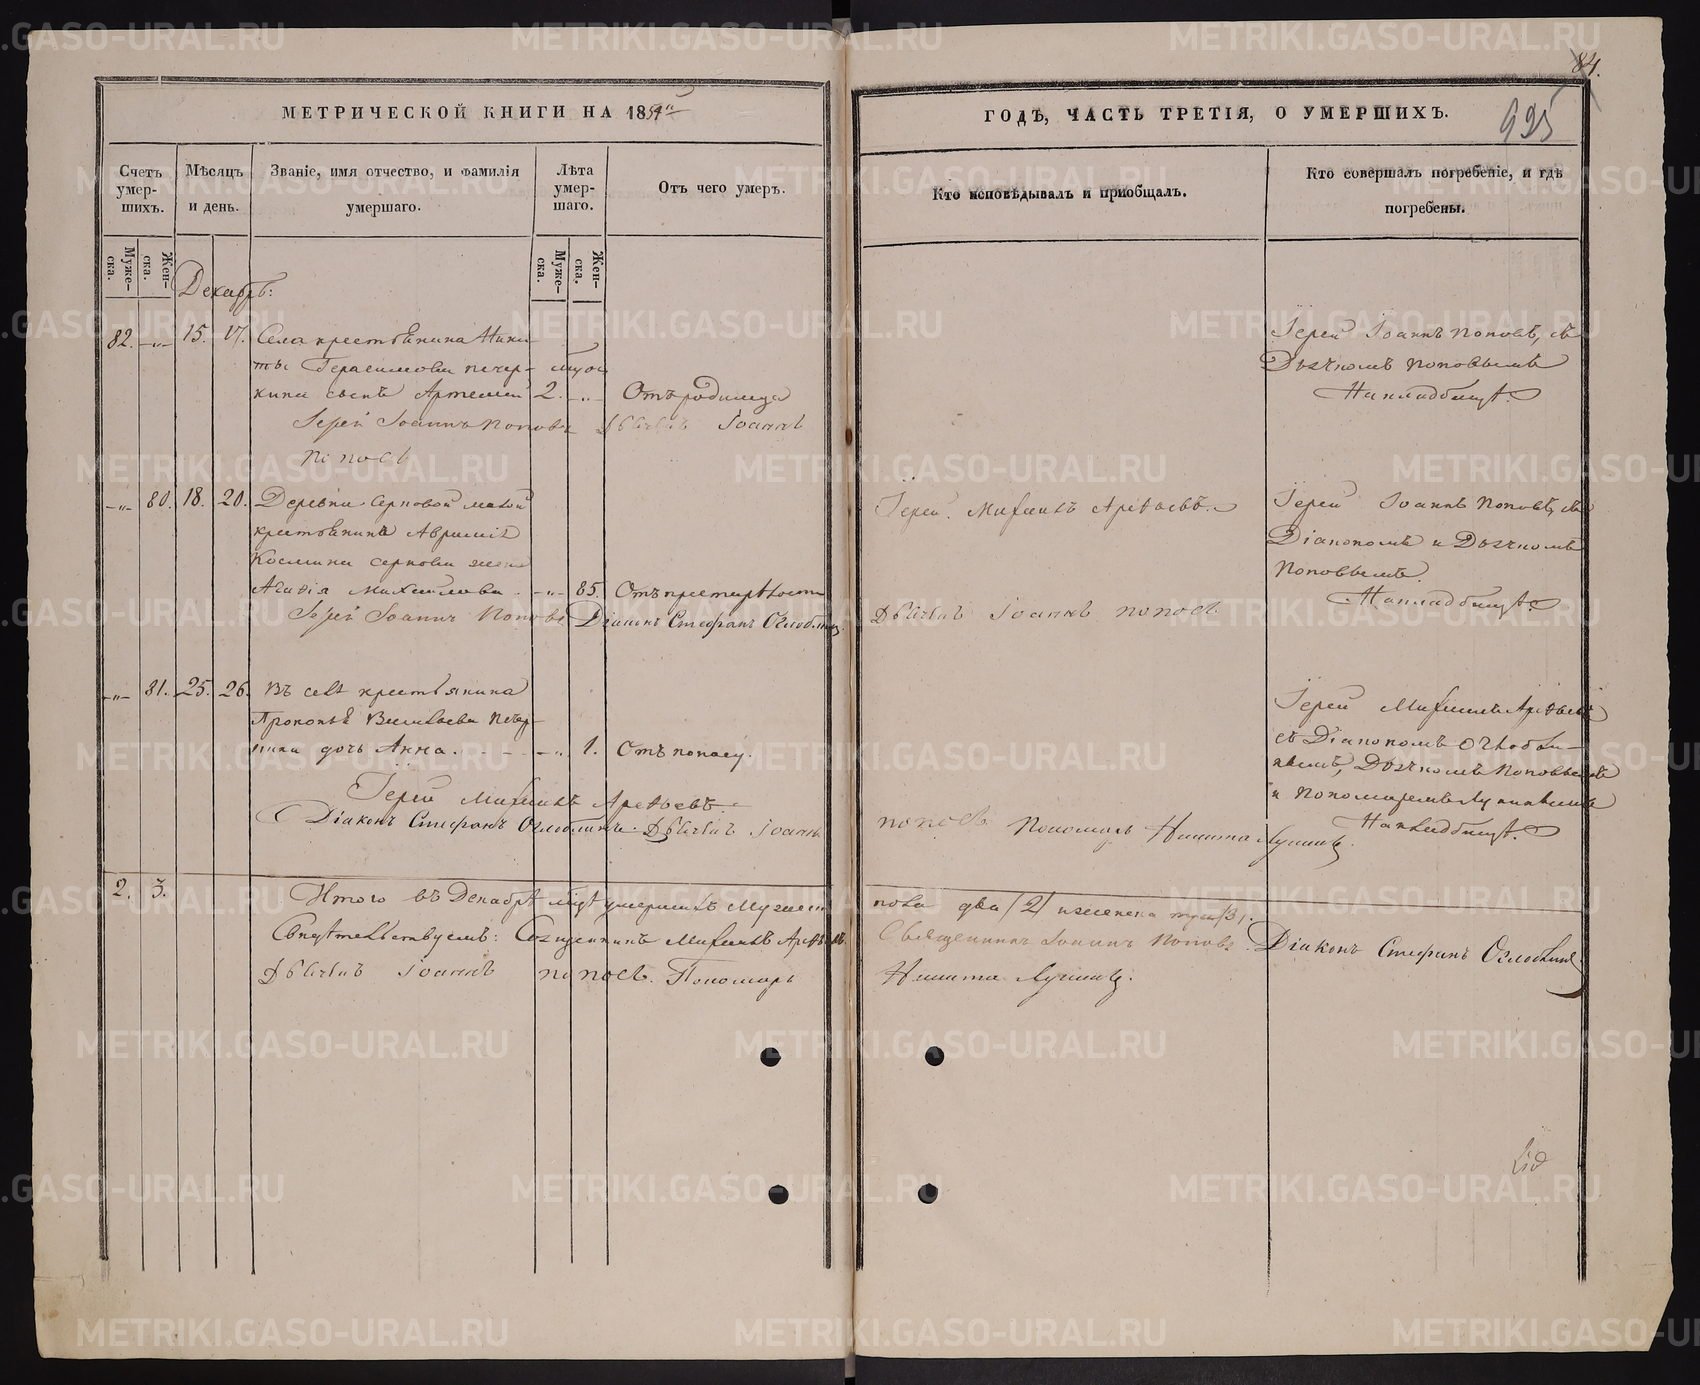 84.
995
МЕТРИЧЕСКОЙ КНИГИ НА 18
ГОДѢ, ЧАСТЬ ТРЕТІЯ, О УМЕРШИХЪ.
Счетъ умер- шихъ.
Муже- ска.
Жен- ска.
Мѣсяцъ и день.
Званіе, имя отчество, и фамилія умершаго.
Лѣта умер- шаго.
Муже- ска.
Жен- ска.
Отъ чего умеръ.
Кто исповѣдывалъ и пріобщалъ.
Кто совершалъ погребеніе, и гдѣ погребены.
Декабрь:
82. -„- 15. 17. Села крестьянина Ники-
ты Герасимова Печер-
кина сынъ Артемій 2. -„- Отъ родимца
Іерей Іоаннъ Поповъ Дьячекъ Іоаннъ
Поповъ
Іерей Іоаннъ Поповъ, съ
Дьячкомъ Поповымъ
На кладбищѣ.
-„- 80. 18. 20. Деревни Серковой
крестьянина
Космина Серкова жена
Михайлова -„- 85. Отъ престарѣлости
Іерей Іоаннъ Поповъ Діаконъ Стефанъ Оглоблинъ.
Іерей Михаилъ Арефьевъ.
Дьячекъ Іоаннъ Поповъ.
Іерей Іоаннъ Поповъ, съ
Діакономъ и Дьячкомъ
Поповымъ.
На кладбищѣ
-„- 81. 25. 26. Въ селѣ крестьянина
Прокопья Васильева Печер-
кина дочь Анна. -„- 1. Отъ поносу.
Іерей Михаилъ Арефьевъ
Діаконъ Стефанъ Оглоблинъ. Дьячекъ Іоаннъ
Поповъ Пономарь Никита
Іерей Михаилъ Арефьевъ
съ Діакономъ Оглобли-
нымъ, Дьячкомъ Поповымъ
и Пономаремъ
На кладбищѣ.
2. 3.
Итого въ Декабрѣ м-цѣ умершихъ Мужеска
пола два /2/ и женска три /3/.
Свидѣтельствуемъ: Священникъ Михаилъ Арефьевъ.
Священникъ Іоаннъ Поповъ. Діаконъ Стефанъ Оглоблинъ
Дьячекъ Іоаннъ Поповъ. Пономарь
Никита
METRIKI.GASO-URAL.RU